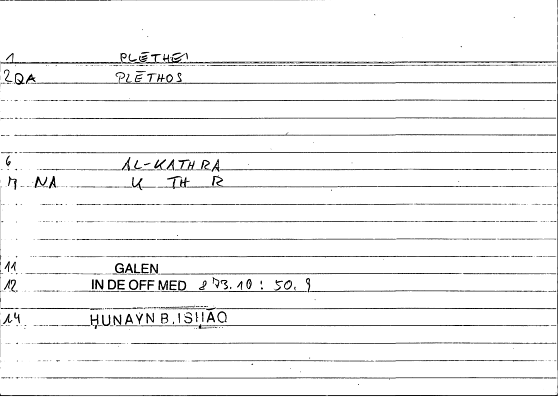 1 PLĒTHEI
2 QA PLĒTHOS
6 AL-KATHRA
7 NA K TH R
11 GALEN
12 IN DE OFF MED 873.10 : 50.9
14 ḤUNAYN B. ISḤĀQ